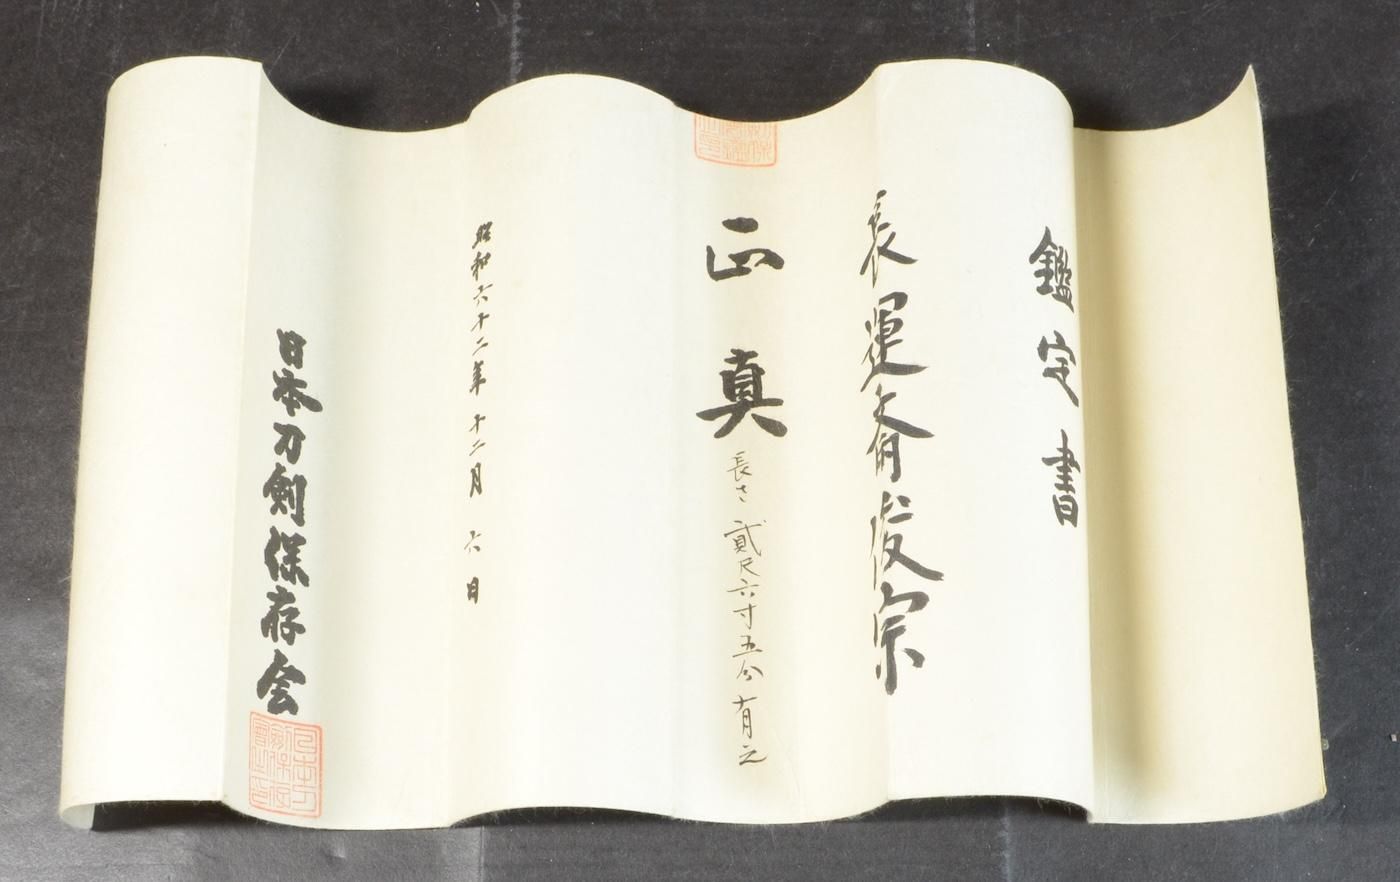 鑑定書
長運斎俊宗
正真
長さ貳尺六寸五分有之
昭和六十二年十二月六日
日本刀剣保存会